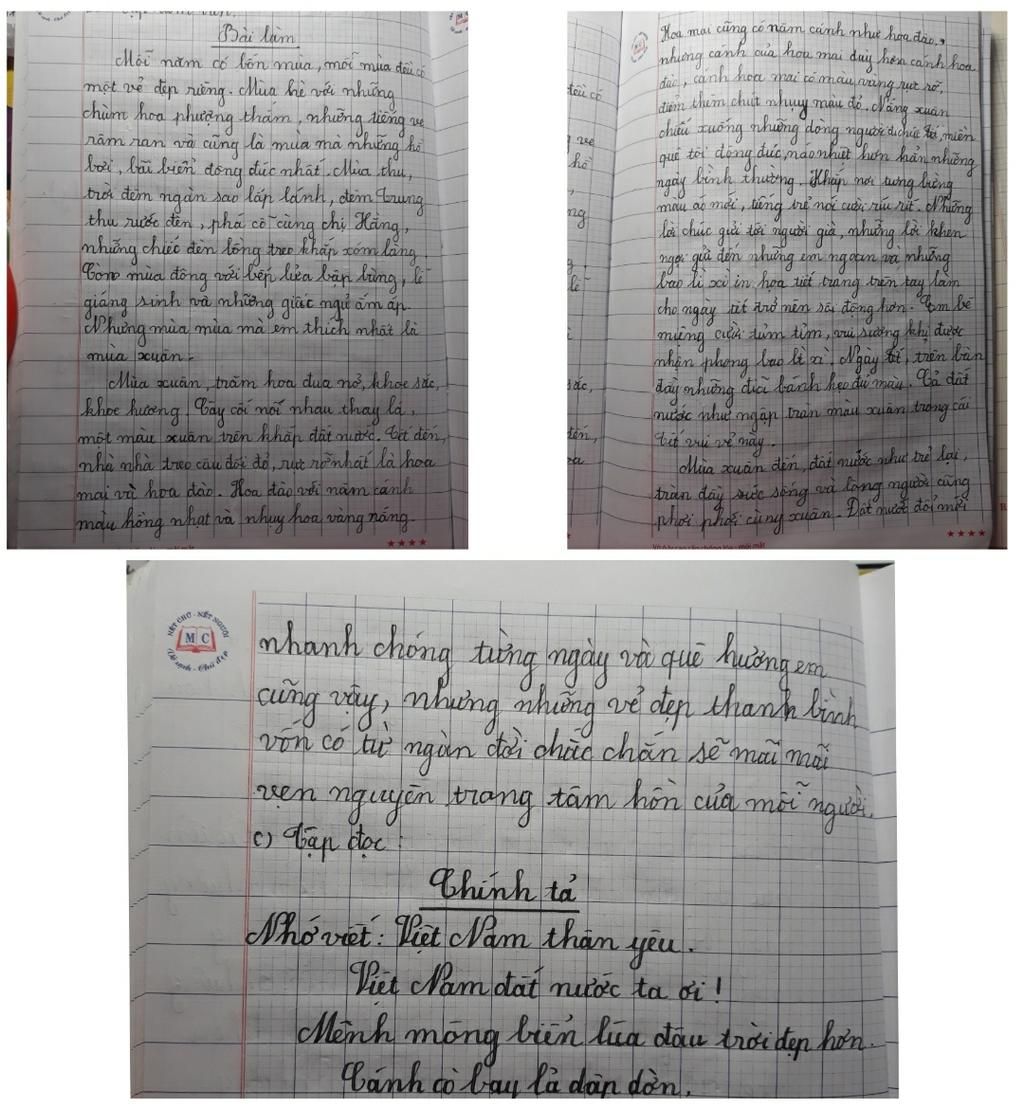 Bài làm
Mỗi năm có bốn mùa, mỗi mùa đều có
một vẻ đẹp riêng. Mùa hè với những
chùm hoa phượng thắm, những tiếng ve
râm ran và cũng là mùa mà những hồ
bơi, bãi biển đông đúc nhất. Mùa thu,
trời đêm ngàn sao lấp lánh, đêm trung
thu rước đèn, phá cỗ cùng chị Hằng,
những chiếc đèn lồng treo khắp xóm làng.
Còn mùa đông với bếp lửa bập bùng, lễ
giáng sinh và những giấc ngủ ấm áp.
Nhưng mùa mùa mà em thích nhất là
mùa xuân.
Mùa xuân, trăm hoa đua nở, khoe sắc,
khoe hương. Cây cối nối nhau thay lá,
một màu xuân trên khắp đất nước. Tết đến,
nhà nhà treo câu đối đỏ, rực rỡ nhất là hoa
mai và hoa đào. Hoa đào với năm cánh
màu hồng nhạt và nhụy hoa vàng nắng.
Hoa mai cũng có năm cánh như hoa đào,
nhưng cánh của hoa mai dày hơn cánh hoa
đào, cánh hoa mai có màu vàng rực rỡ,
điểm thêm chút nhụy màu đỏ. Nắng xuân
chiếu xuống những dòng người đi chúc tết, miền
quê tôi đông đúc, náo nhiệt hơn hẳn những
ngày bình thường. Khắp nơi tưng bừng
màu áo mới, tiếng trẻ nói cười ríu rít. Những
lời chúc gửi tới người già, những lời khen
ngợi gửi đến những em ngoan và những
bao lì xì in họa tiết trang trên tay làm
cho ngày tết trở nên sôi động hơn. Em bé
miệng cười tủm tỉm, vui sướng khi được
nhận phong bao lì xì. Ngày tết, trên bàn
đầy những đĩa bánh kẹo đủ màu. Cả đất
nước như ngập tràn màu xuân trong cái
tết vui vẻ này.
Mùa xuân đến, đất nước như trẻ lại,
tràn đầy sức sống và lòng người cũng
phơi phới cùng xuân. Đất nước đổi mới
★★★★
★★★★
NÉT CHỮ - NẾT NGƯỜI
MC
nhanh chóng từng ngày và quê hương em
cũng vậy, nhưng những vẻ đẹp thanh bình
vốn có từ ngàn đời chắc chắn sẽ mãi mãi
vẹn nguyên trong tâm hồn của mỗi người.
c) Tập đọc:
Chính tả
Nhớ viết: Việt Nam thân yêu.
Việt Nam đất nước ta ơi!
Mênh mông biển lúa đâu trời đẹp hơn.
Cánh cò bay lả dập dờn,